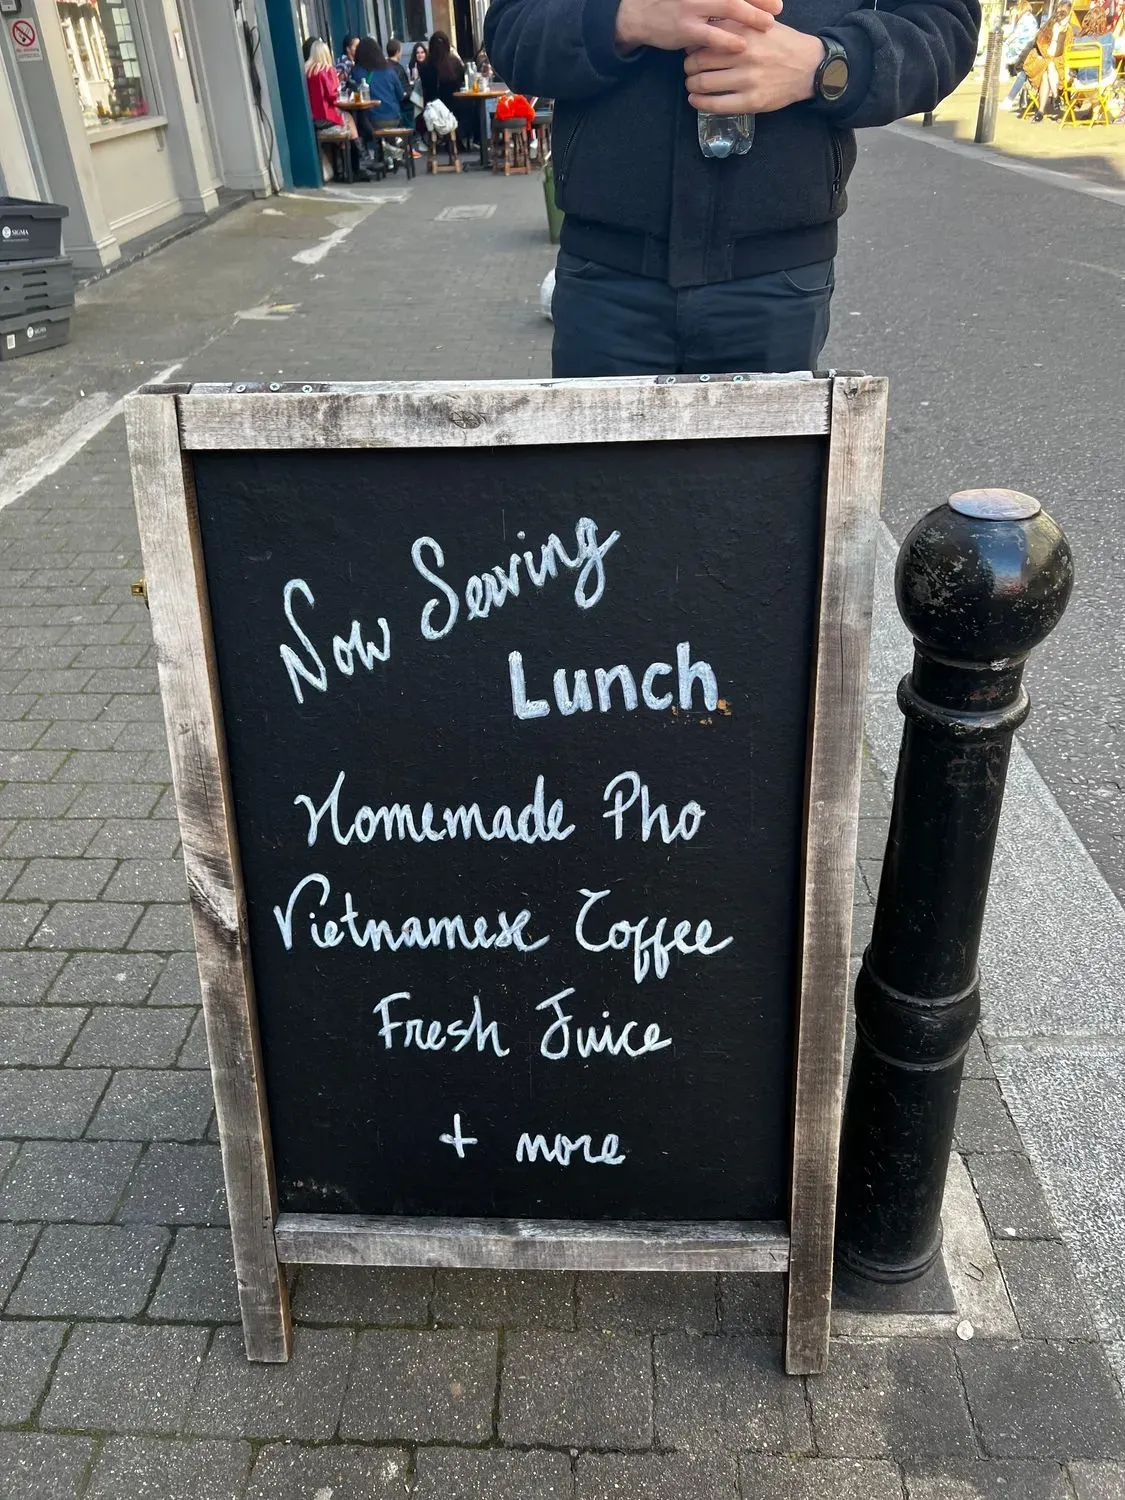 Now Serving
Lunch
Homemade Pho
Vietnamese Coffee
Fresh Juice
+ more
SIGMA
SIGMA